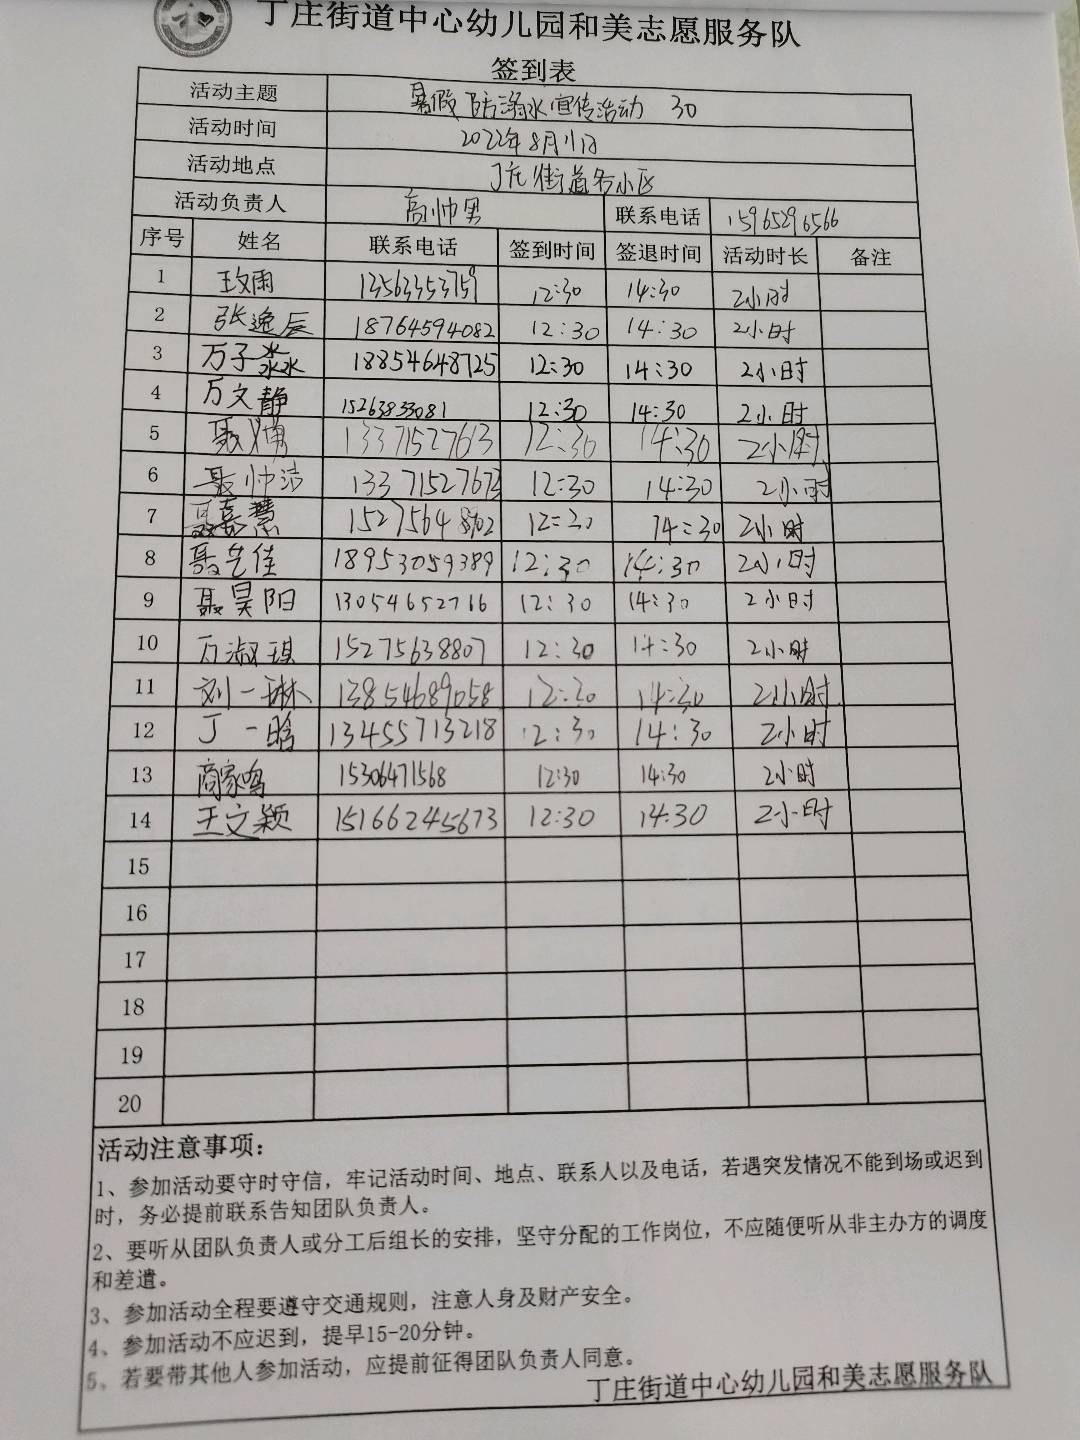 丁庄街道中心幼儿园和美志愿服务队
签到表
活动主题 暑假防溺水宣传活动 30
活动时间 2022年8月11日
活动地点 丁庄街道各小区
活动负责人 高帅男 联系电话 15965296566
序号 姓名 联系电话 签到时间 签退时间 活动时长 备注
1 12:30 14:30 2小时
2 张逸辰 18764594082 12:30 14:30 2小时
3 万子淼 18854648725 12:30 14:30 2小时
4 万文静 15263833081 12:30 14:30 2小时
5 13371527613 12:30 14:30 2小时
6 聂帅洁 13371527673 12:30 14:30 2小时
7 聂嘉慧 12:30 14:30 2小时
8 聂艺佳 18953059389 12:30 14:30 2小时
9 聂昊阳 13054652766 12:30 14:30 2小时
10 万淑琪 15275638807 12:30 14:30 2小时
11 刘一琳 13854689058 12:30 14:30 2小时
12 丁一晗 13455713218 12:30 14:30 2小时
13 商家鸣 15306471568 12:30 14:30 2小时
14 王文颖 15166245673 12:30 14:30 2小时
15
16
17
18
19
20
活动注意事项：
1、参加活动要守时守信，牢记活动时间、地点、联系人以及电话，若遇突发情况不能到场或迟到
时，务必提前联系告知团队负责人。
2、要听从团队负责人或分工后组长的安排，坚守分配的工作岗位，不应随便听从非主办方的调度
和差遣。
3、参加活动全程要遵守交通规则，注意人身及财产安全。
4、参加活动不应迟到，提早15-20分钟。
5、若要带其他人参加活动，应提前征得团队负责人同意。
丁庄街道中心幼儿园和美志愿服务队